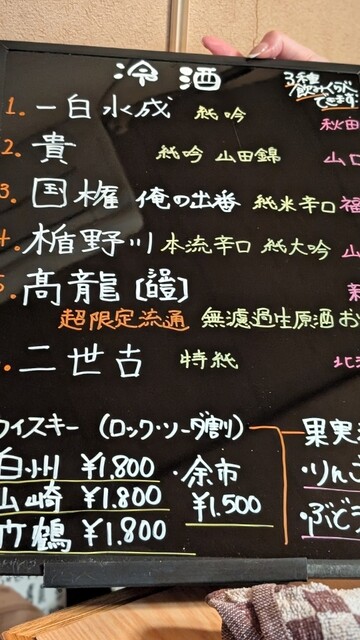 冷酒
3種飲みくらべできます
1. 一白水成 純吟 秋田
2. 貴 純吟 山田錦 山口
3. 国権 俺の出番 純米辛口 福
4. 楯野川 本流辛口 純大吟 山
5. 高龍 超限定流通 無濾過生原酒
二世古 特純 北
ウイスキー (ロック・ソーダ割) 果実
白州 ¥1.800 ・余市 ¥1.500 ・りんご
山崎 ¥1.800 ・ぶどう
竹鶴 ¥1.800